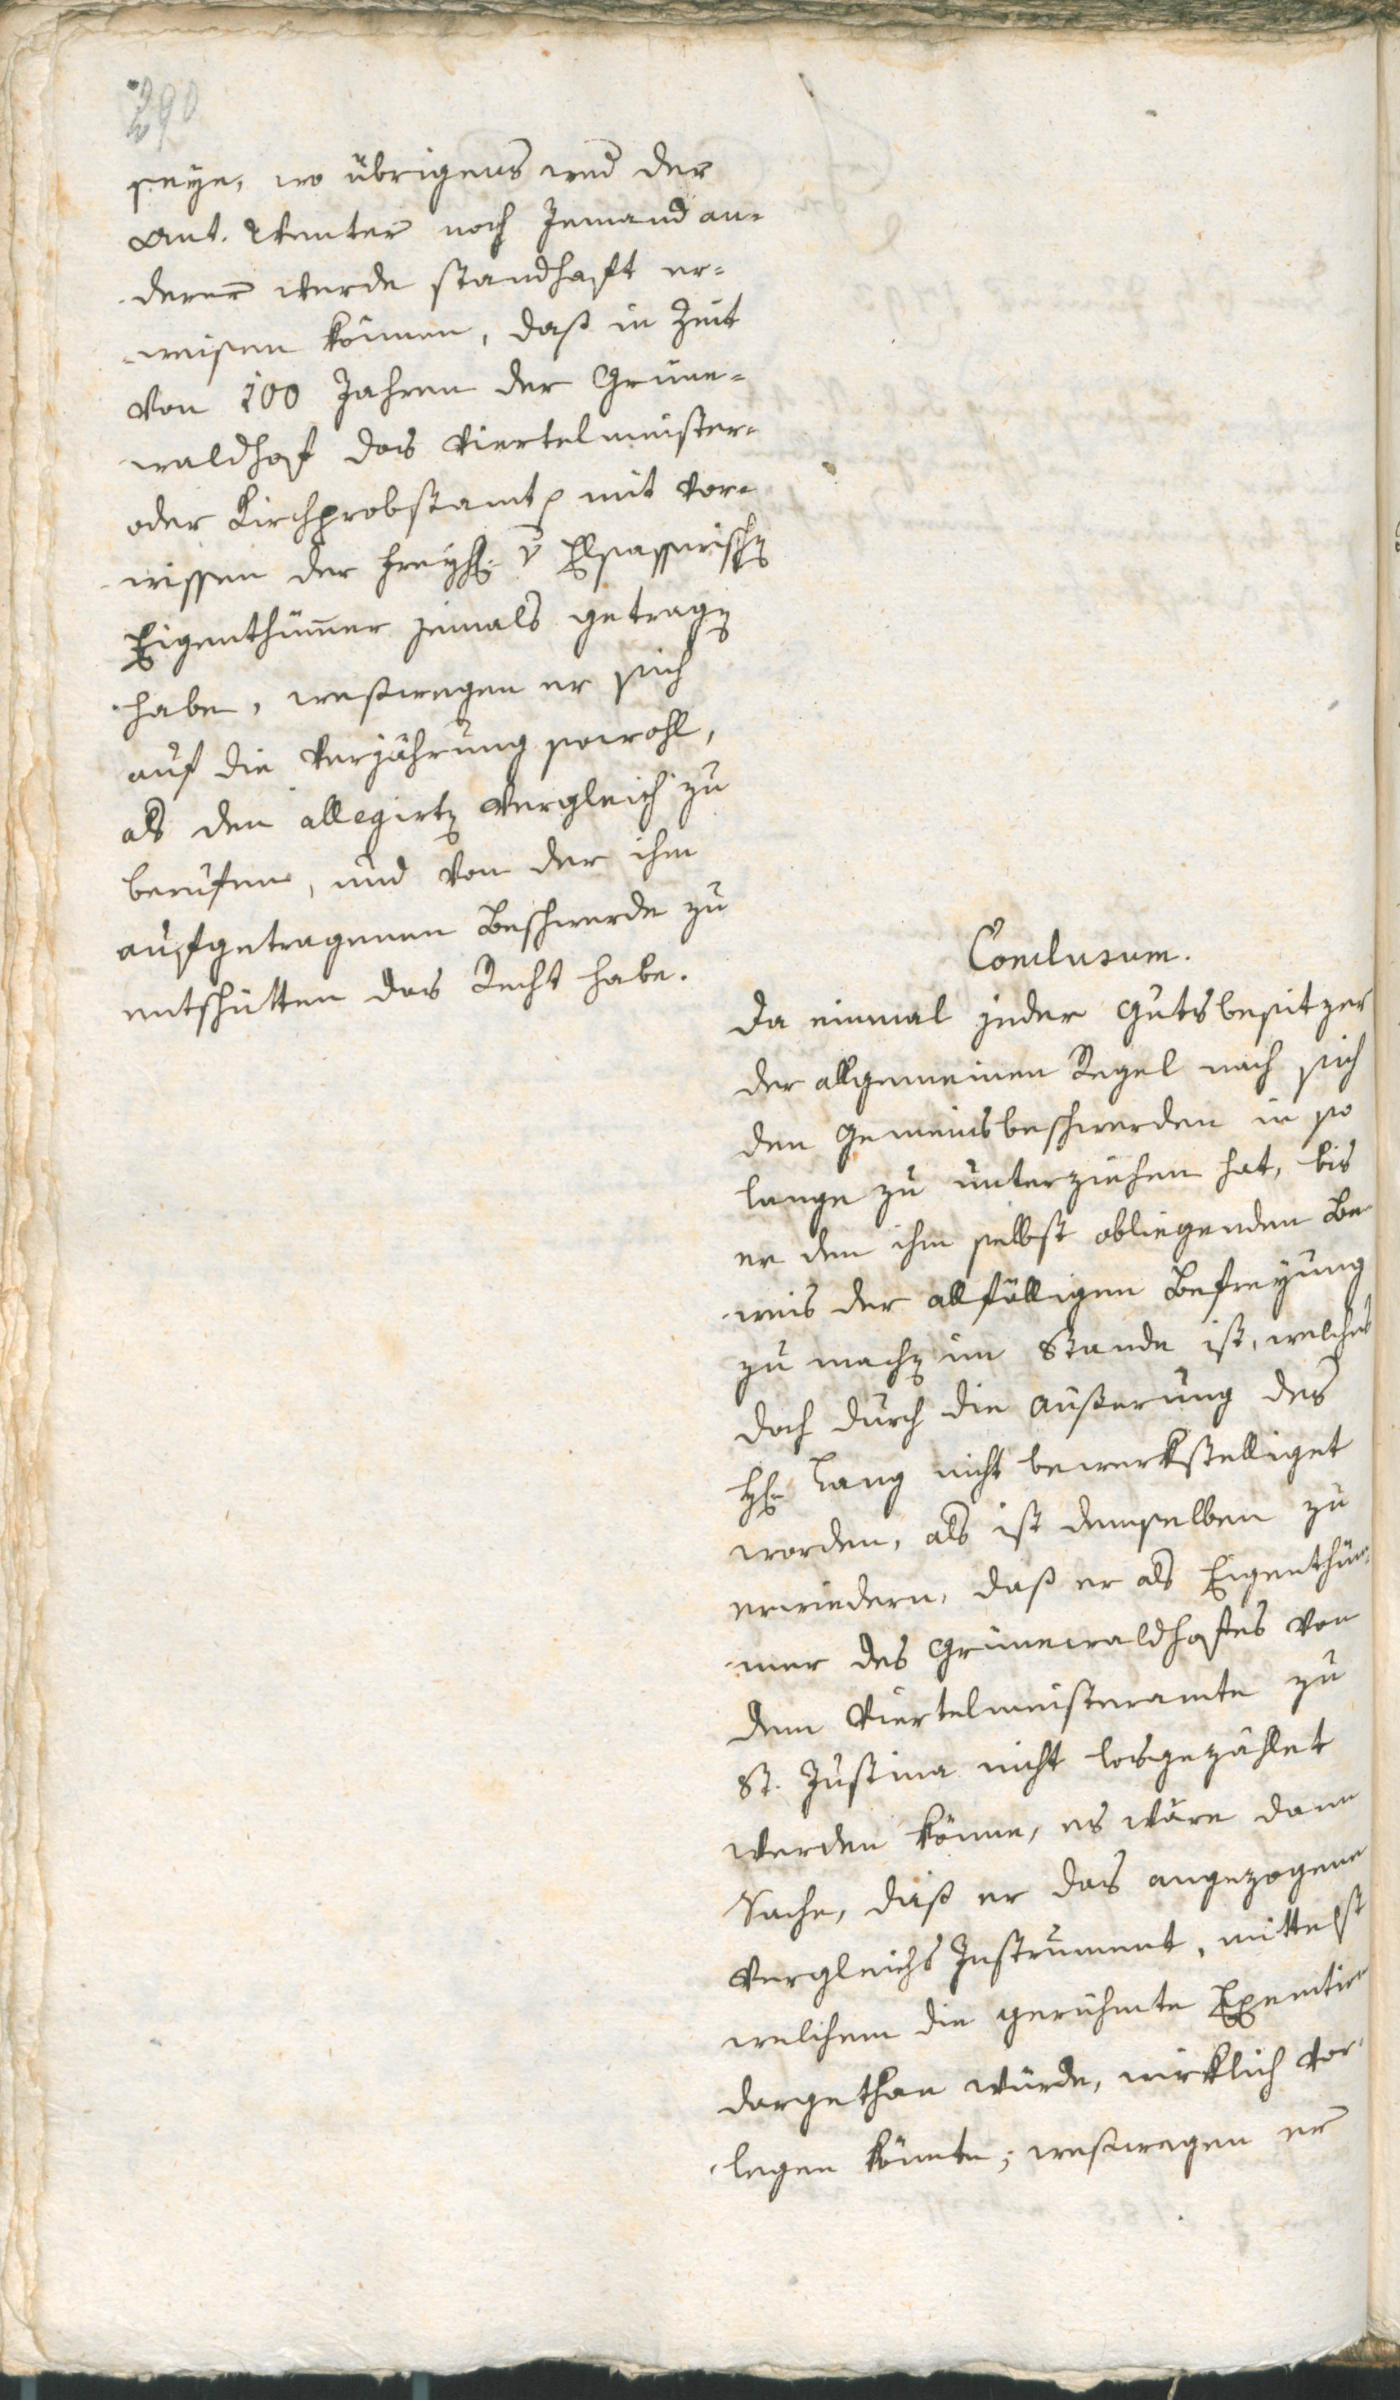 290
seye, wo übrigens wed der
Ant. Wenter noch Jemand an-
derer werde standhaft er-
weisen können, daß in Zeit
von 100 Jahren der Grüne-
waldhof das Viertelmeister-
oder Kirchprobstamt mit Vor-
wissen der Freyh. v Elsasserischen
Eigenthümer jemals getragen
habe, weßwegen er sich
auf die Verjährung sowohl,
als den allegirten Vergleich zu
berufen, und von der ihm
aufgetragenen Beschwerde zu
entschütten das Recht habe.
Conclusum.
Da einmal jeder Gutsbesitzer
der allgemeinen Regel nach sich
den Gemeinsbeschwerden in so
lange zu unterziehen hat, bis
er den ihm selbst obliegenden Be
weis der allfälligen Befreyung
zu machen im Stande ist, welches
doch durch die Äußerung des
H. Lang nicht bewerkstelliget
worden, als ist demselben zu
erwiedern, daß er als Eigenthüm-
mer des Grünewaldhofes von
dem Viertelmeisteramte zu
St. Justina nicht losgezählet
werden könne, es wäre dann
Sache, daß er das angezogene
Vergleichs Instrument, mittelst
welchem die gerühmte Exemtion
dargethan würde, wirklich vor-
legen könnte; weßwegen er